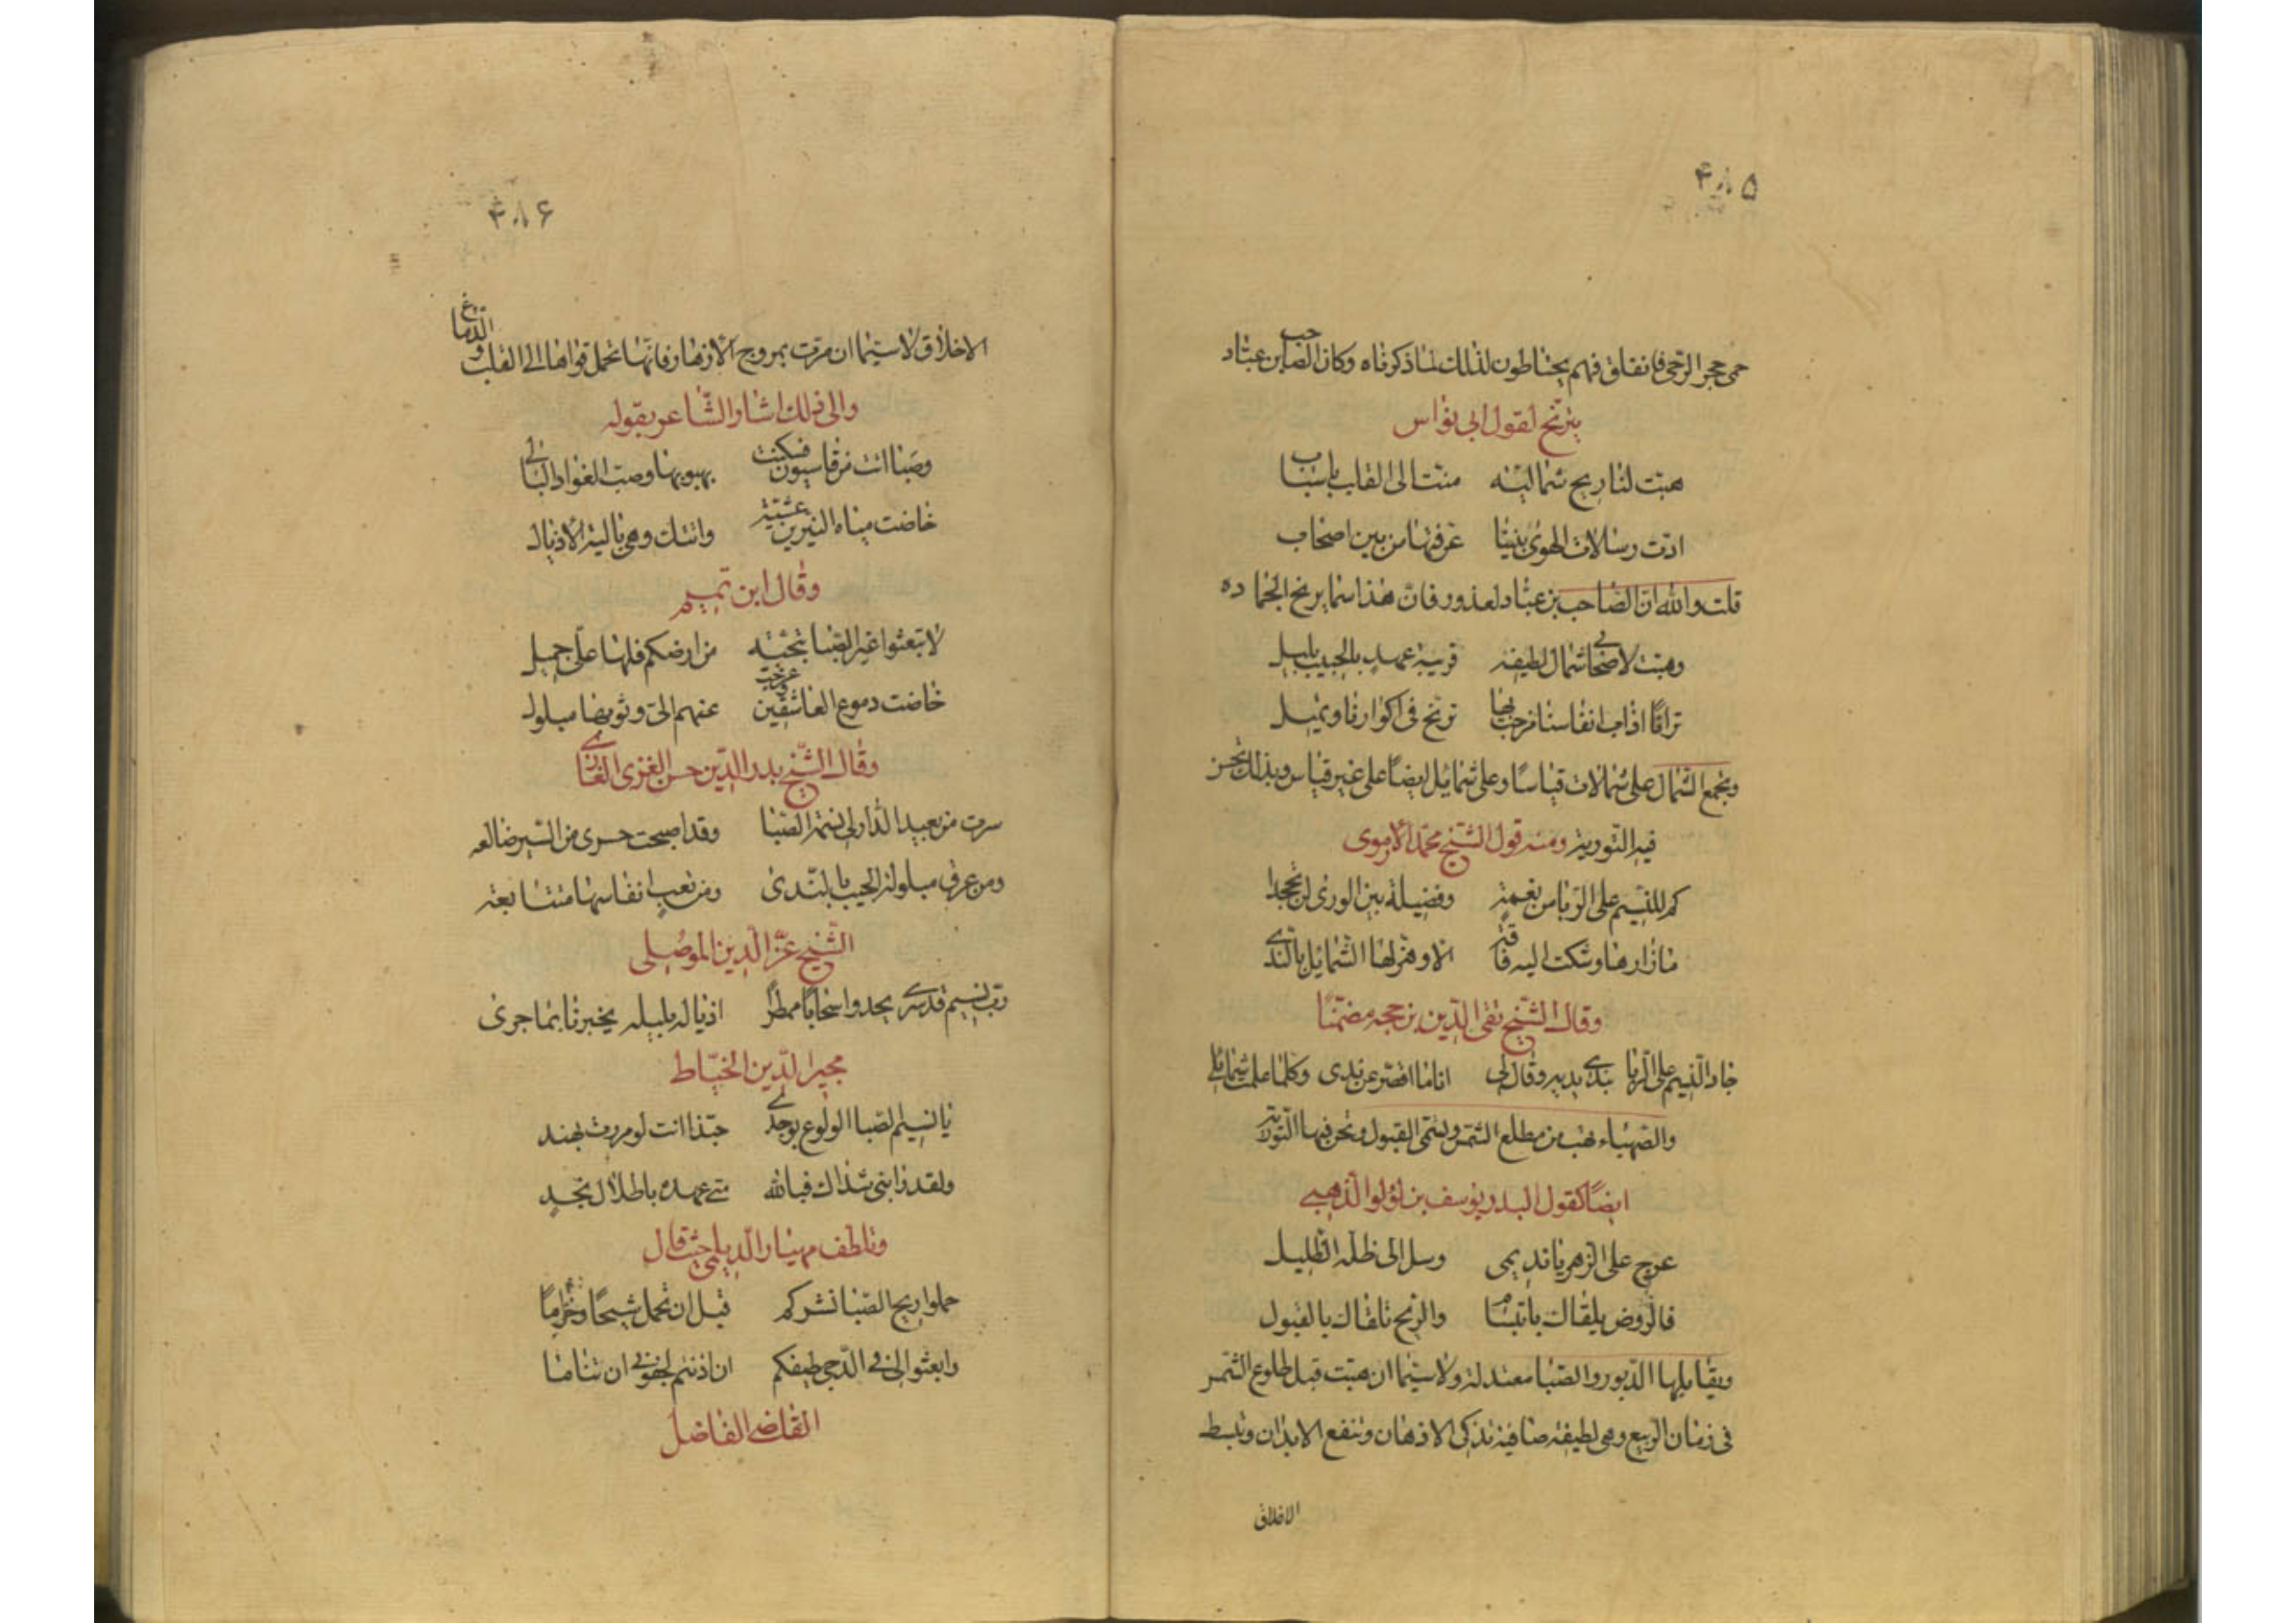 ۴۸۵
حمى حجر الرّحى فانفلق فهم يحتاطون لذلك لما ذكرناه وكان الصّاحب بن عبّاد
يترنّح لقول ابى نواس
هبّت لنا ريح شماليّه متّت الى القلب باسباب
ادّت رسالات الهوى بيننا عرفتها من بين اصحاب
قلت والله انّ الصّاحب بن عبّاد لمعذور فانّ هذا مما يرنح الجماده
وهبّت لاصحابى شمال لطيفه قريبة عهد بالحبيب بليل
ترانا اذا انفاسنا مزجت بها ترنح فى اكوارنا ونميل
ويجمع الشّمال على شمالات قياسًا وعلى شمايل ايضًا على غير قياس وبذلك تحسن
فيه التّورية ومنه قول الشّيخ محمّد الاموى
كم للنّسيم على الرّبا من نعمةٍ وفضيلة بين الورى لن تجحدا
ما زارها وشكت اليه فاقة الا وهزّ لها الشّمايل بالنّدى
وقال الشّيخ تقى الدّين بن حجه مضمّنًا
جاد النّسيم على الرّبا بندى يديه وقال لى انا ما اقصّر عن ندى وكما علمت شمائلى
والصّهباء تهب من مطلع الشّمس وتسمّى القبول وتحسن فيها التّوريّة
ايضًا كقول البدر يوسف بن لؤلؤ الذّهبى
عرج على الزهر يا نديمى وسل الى ظلّه الظّليل
فالرّوض يلقاك بابتسام والرّيح تلقاك بالقبول
ويقابلها الدّبور والصّبا معتدلة ولا سيّما ان هبّت قبل طلوع الشّمس
فى زمان الرّبيع وهى لطيفة صافية تذكى الاذهان وتنفع الابدان وتبسط
الاخلاق
۴۸۶
الاخلاق لا سيّما ان مرّت بمروج الازهار فانّها تحمل قواها الى القلب والدّماغ
والى ذلك اشار الشّاعر بقوله
وصَبا اتت من قاسيون فسكنت بهبوبها وصب الفؤاد البالى
خاضت مياه النيربين عشيّة واتتك وهى بالية الاذيال
وقال ابن تميم
لا تبعثوا غير الصّبا بتحيّة من ارضكم فلها علىّ جميل
خاضت دموع العاشقين وعرّجت عنهم الىّ وثوبها مبلول
وقال الشّيخ بدر الدّين حسن الغزى الغازى
سرت من بعيد الدّار لى نسمة الصّبا وقد اصبحت حسرى من السّير ضالعه
ومن عرق مبلولة الجيب بالنّدى ومن تعب انفاسها متتابعه
الشّيخ عزّ الدّين الموصلى
رب نسيم قد سرى يحدو اسحابًا ممطرًا اذياله بليله يخبرنا بما جرى
مجير الدّين الخيّاط
يا نسيم الصّبا الولوع بوجدى حبّذا انت لو مررت بهند
ولقد رابنى شذاك فبالله متى عهده باطلال نجد
وتلطف مهيار الدّيلمى حيث قال
حملوا ريح الصّبا نشركم قبل ان تحمل شيحًا وخزامًا
وابعثوا لى فى الدّجى طيفكم ان اذنتم لجفونى ان تناما
القاضى الفاضل